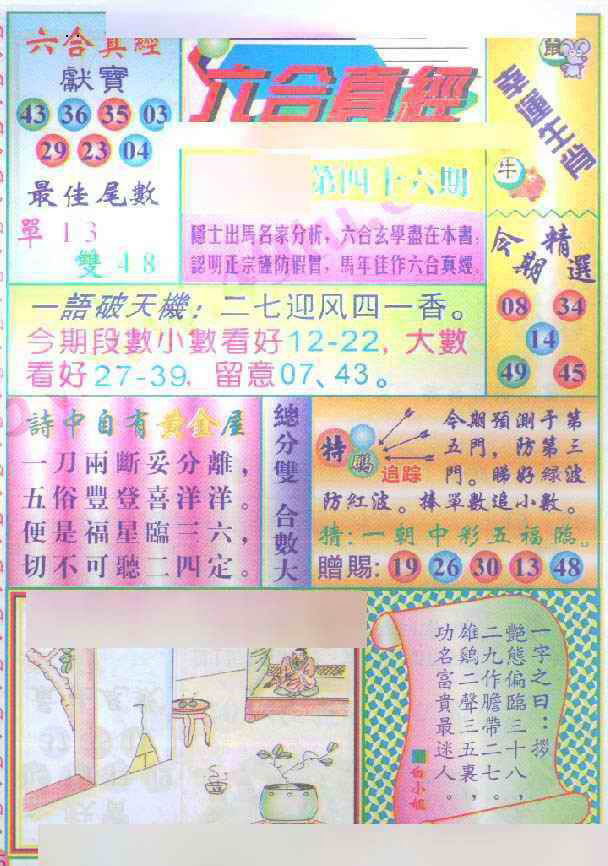 六合真經
獻寶
43 36 35 03
29 23 04
最佳尾數
單 1 3
雙 4 8
六合真經
第四十六期
隱士出馬名家分析，六合玄學盡在本書；
認明正宗謹防假冒，馬年佳作六合真經。
鼠
幸運生肖
牛
今期精選
08 34
14
49 45
一語破天機：二七迎风四一香。
今期段數小數看好12-22，大數
看好27-39，留意07、43。
詩中自有黃金屋
一刀兩斷妥分離，
五俗豐登喜洋洋。
便是福星臨三六，
切不可聽二四定。
總分雙 合數大
特
追踪
今期預測于第
五門，防第三
門。睇好綠波
防紅波。捧單數追小數。
猜：一朝中彩五福臨。
贈賜：19 26 30 13 48
一字之曰：拶
艷態偏臨三十八，
二九作膽帶二七。
雄鷄二聲三五裏，
功名富貴最迷人。
白小姐